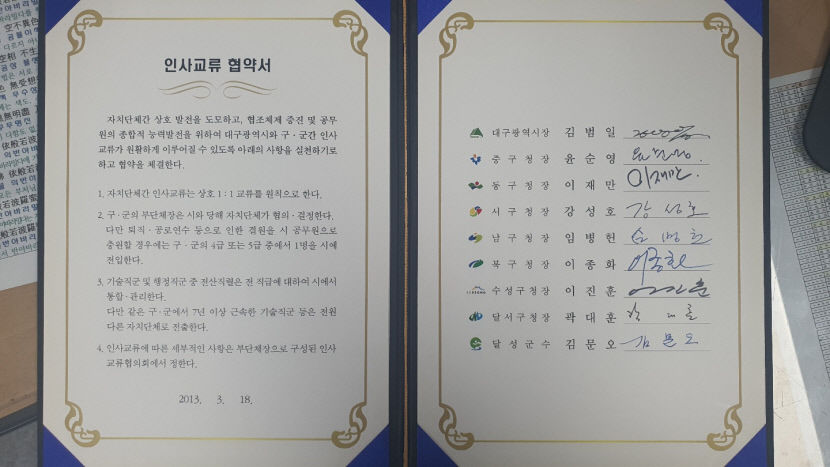 인사교류 협약서
자치단체간 상호 발전을 도모하고, 협조체제 증진 및 공무
원의 종합적 능력발전을 위하여 대구광역시와 구 · 군간 인사
교류가 원활하게 이루어질 수 있도록 아래의 사항을 실천하기로
하고 협약을 체결한다.
1. 자치단체간 인사교류는 상호 1 : 1 교류를 원칙으로 한다.
2. 구 · 군의 부단체장은 시와 당해 자치단체가 협의 · 결정한다.
다만 퇴직 · 공로연수 등으로 인한 결원을 시 공무원으로
충원할 경우에는 구 · 군의 4급 또는 5급 중에서 1명을 시에
전입한다.
3. 기술직군 및 행정직군 중 전산직렬은 전 직급에 대하여 시에서
통합 · 관리한다.
다만 같은 구 · 군에서 7년 이상 근속한 기술직군 등은 전원
다른 자치단체로 전출한다.
4. 인사교류에 따른 세부적인 사항은 부단체장으로 구성된 인사
교류협의회에서 정한다.
2013. 3. 18.
대구광역시장 김 범 일
중 구 청 장 윤 순 영
동 구 청 장 이 재 만 이재만
서 구 청 장 강 성 호 강 성호
남 구 청 장 임 병 헌
북 구 청 장 이 종 화
수성구청장 이 진 훈
달서구청장 곽 대 훈
달 성 군 수 김 문 오 김 문 오